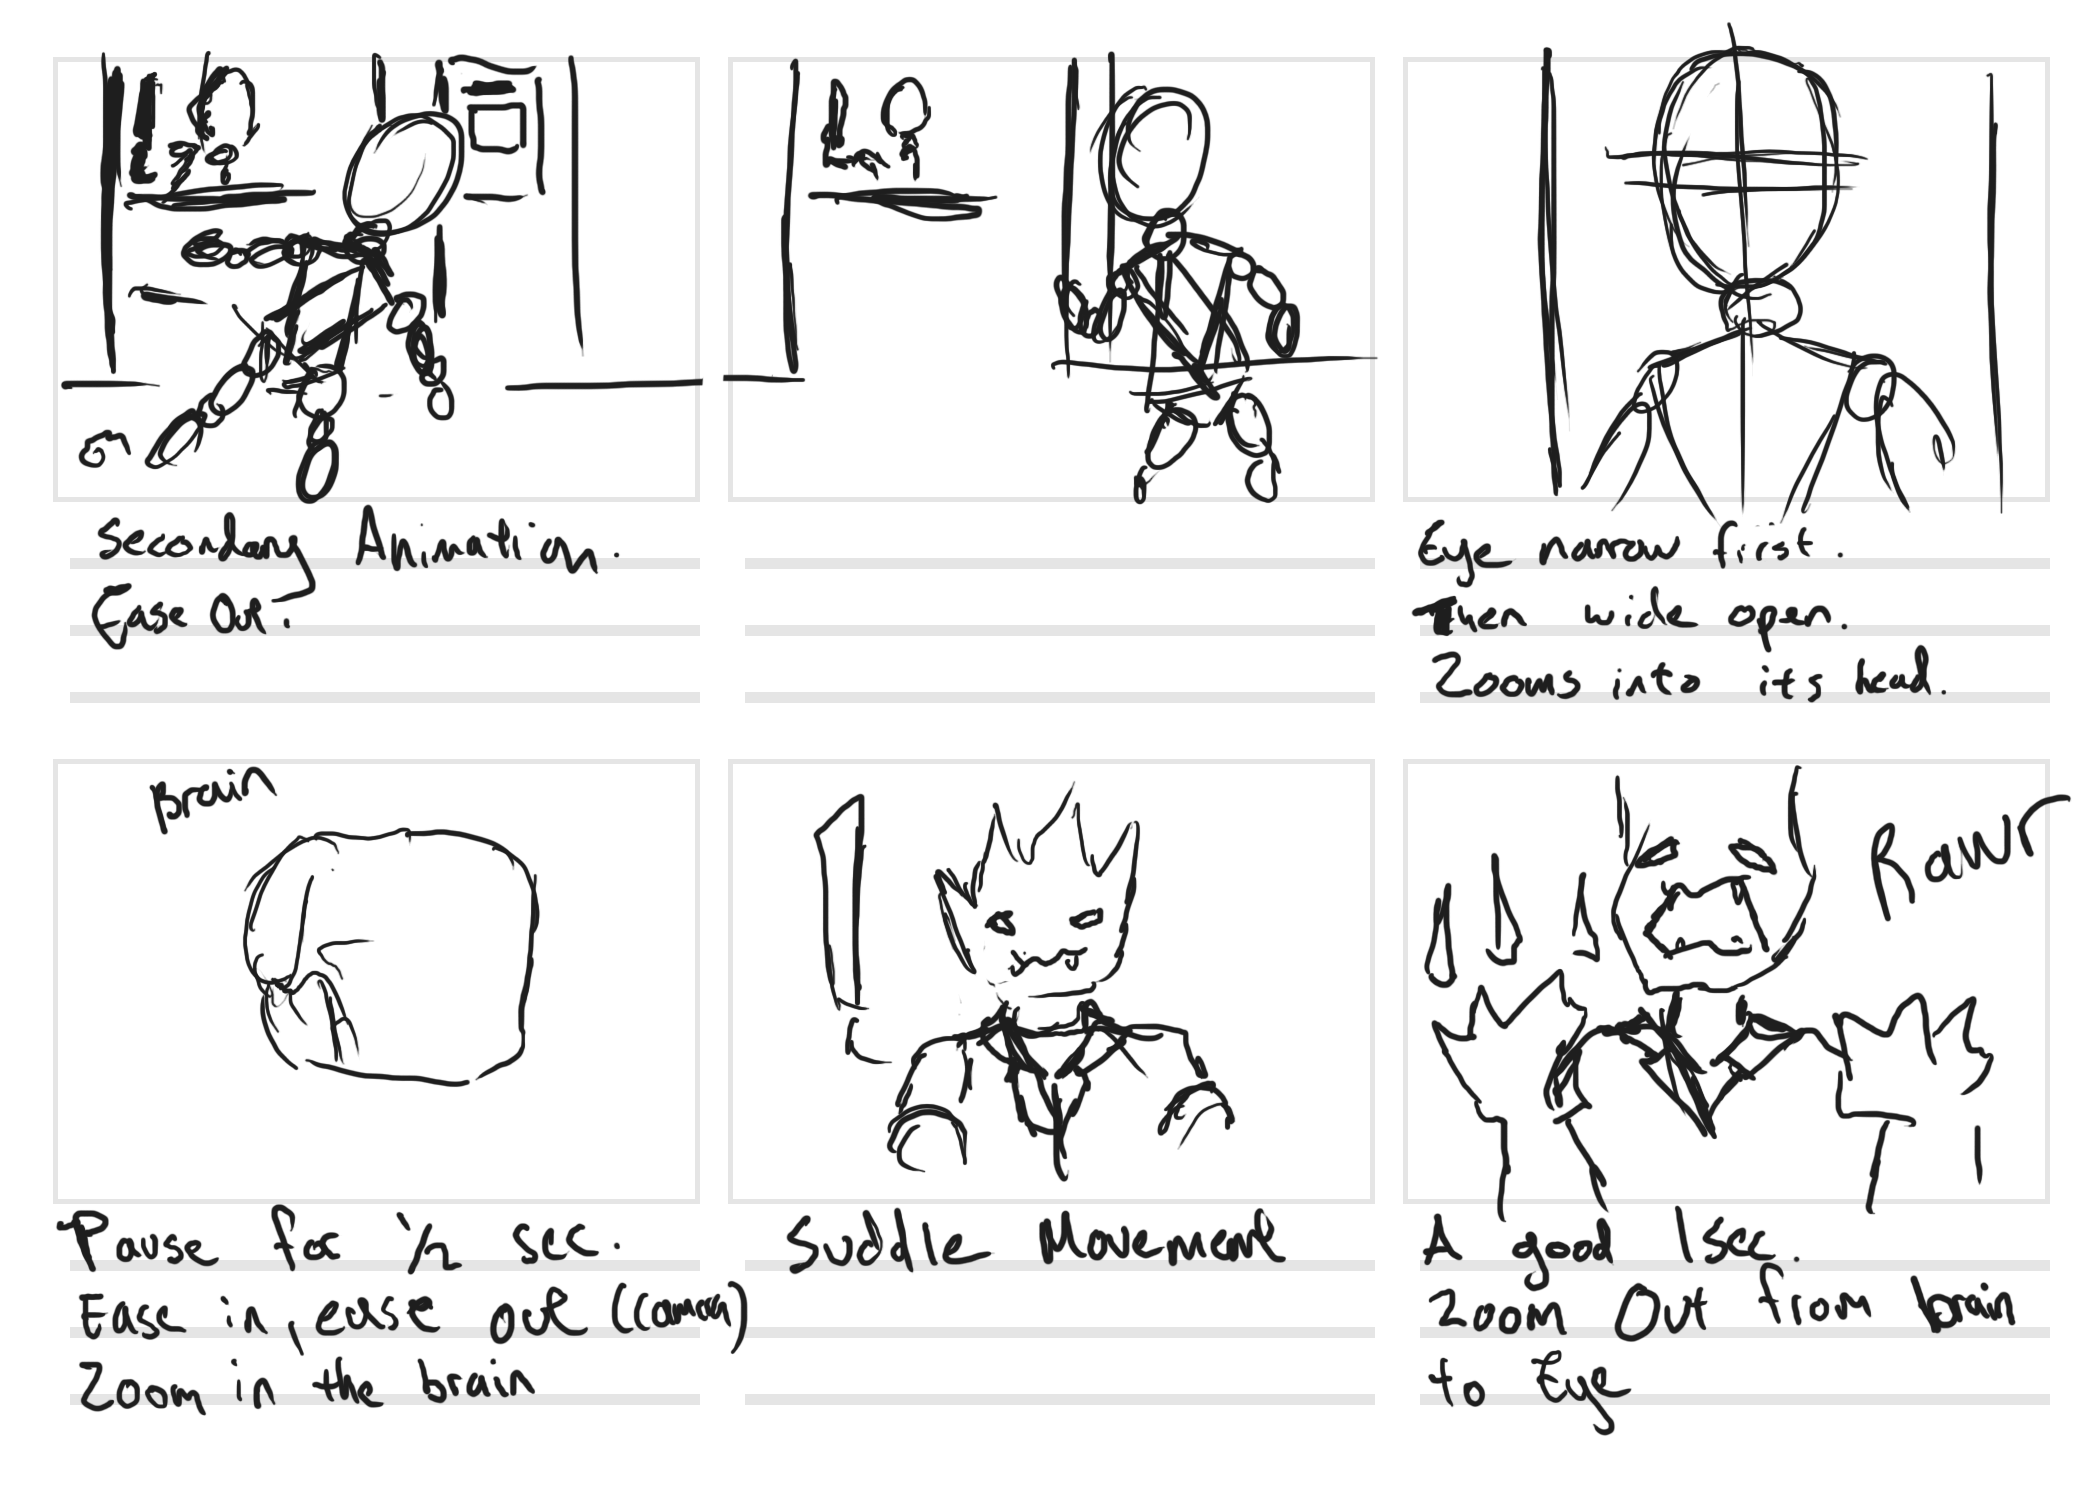 Secondary Animation.
Ease Out.
Eye narrow first.
Then wide open.
Zooms into its head.
Brain
Pause for 1/2 sec.
Ease in, ease out (Camera)
Zoom in the brain
Suddle Movement
Rawr
A good 1sec.
Zoom Out from brain
to Eye